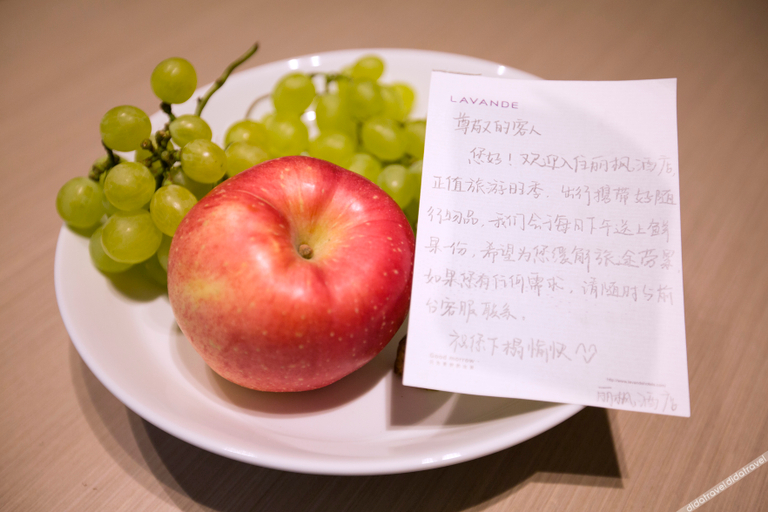 LAVANDE
尊敬的客人
您好！欢迎入住丽枫酒店，
正值旅游旺季，出行携带好随
行物品，我们会于每日下午送上鲜
果一份，希望为您缓解旅途劳累，
如果您有任何需求，请随时与前
台客服联系。
祝您下榻愉快
丽枫酒店
didatraveldidatravel